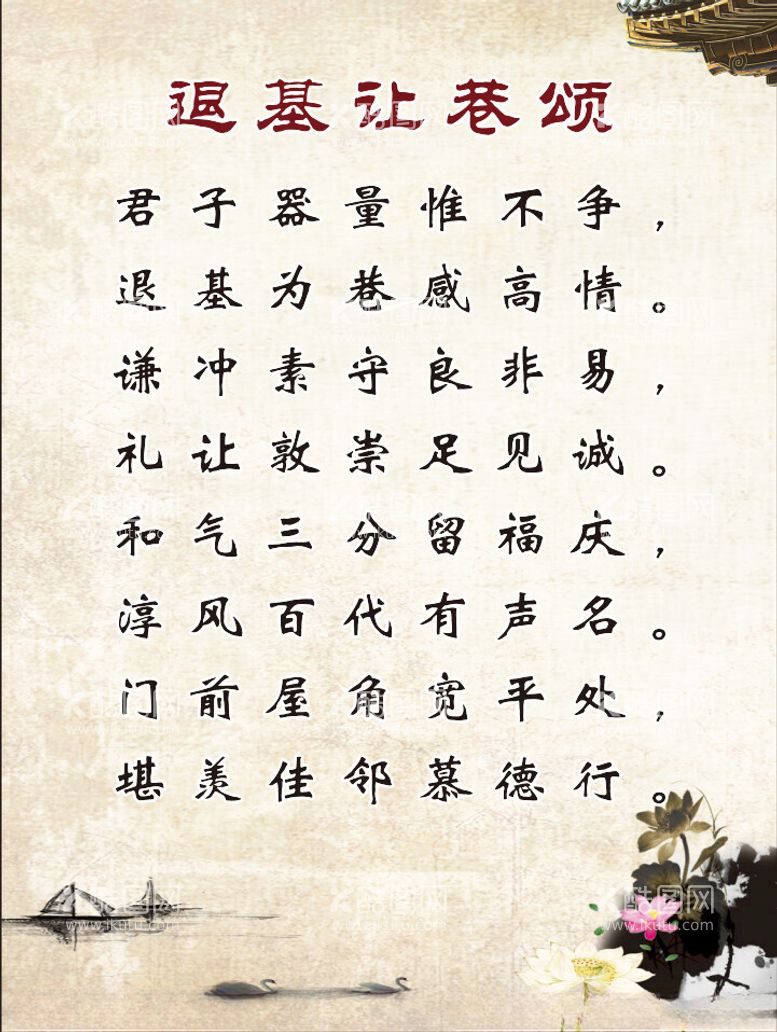 退基让巷颂
君子器量惟不争，
退基为巷感高情。
谦冲素守良非易，
礼让敦崇足见诚。
和气三分留福庆，
淳风百代有声名。
门前屋角宽平处，
堪羡佳邻慕德行。
酷图网
www.ikutu.com